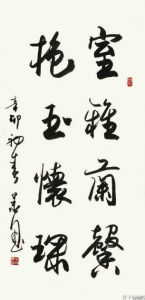 室雅蘭馨
抱玉懷琛
辛卯初春